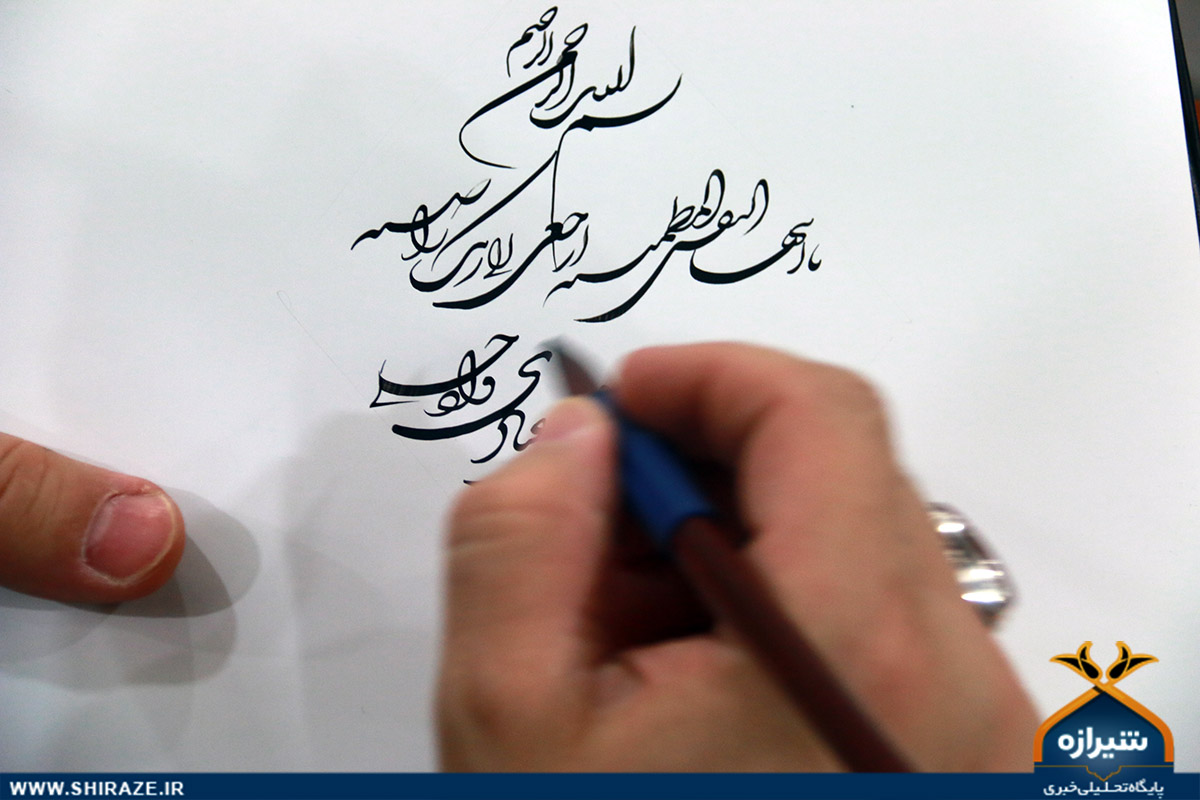 بسم الله الرحمن الرحیم
یا ایتها النفس المطمئنه ارجعی الی ربک راضیه
وادخلی
شیرازه
پایگاه تحلیلی خبری
WWW.SHIRAZE.IR